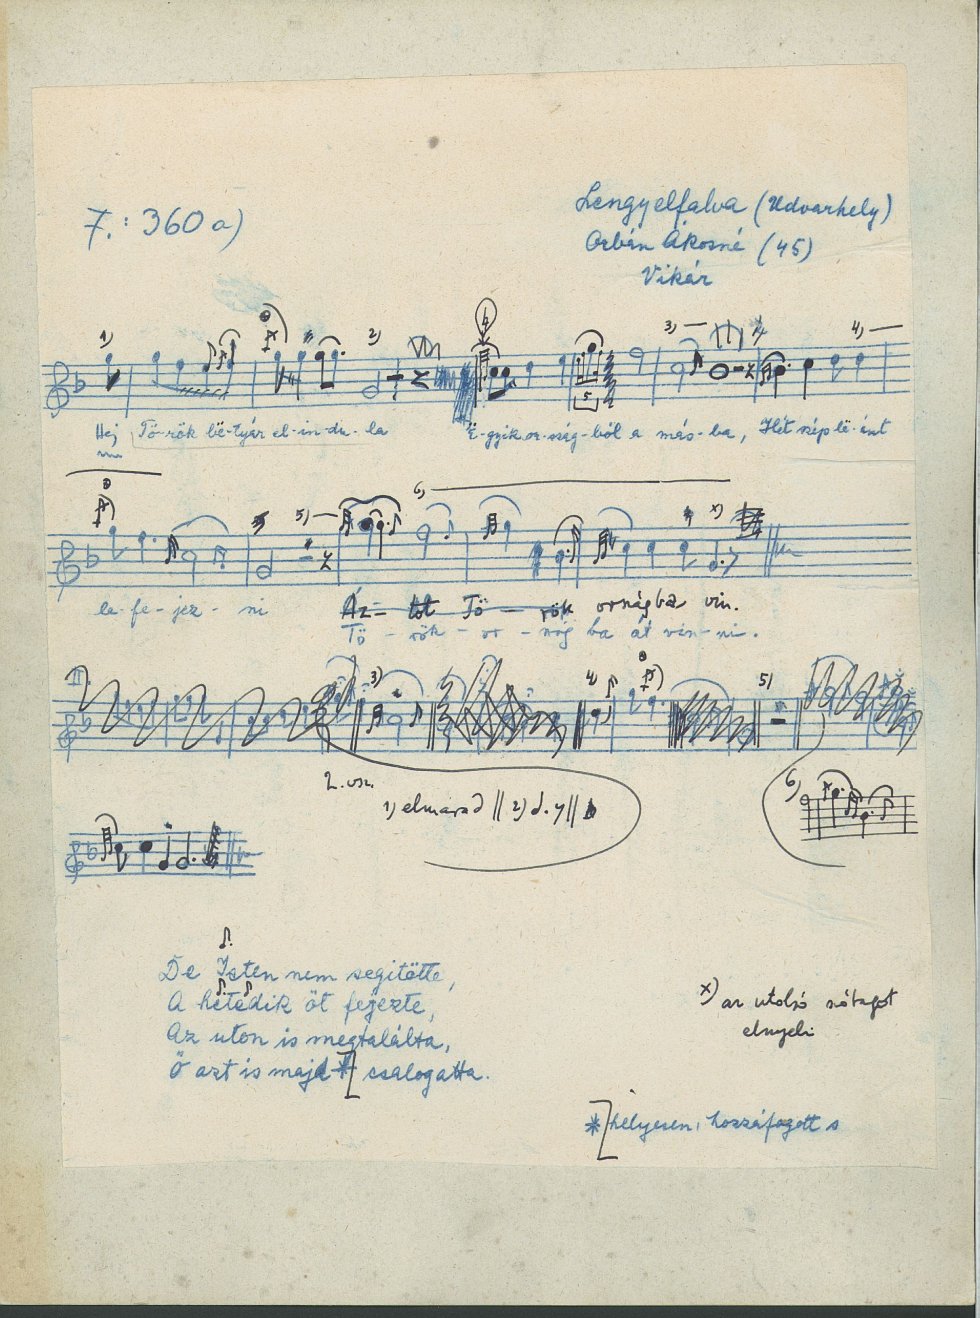 7.: 360 a)
Lengyelfalva (Udvarhely)
Orbán Ákosné (45)
Vikár
1) 2) 3) 4)
Hej Tö-rök bë-tyár el-in-du-la Ë-gyik or-szág-ból a más-ba, Hét szép lë-ánt
5) 6) x)
le-fe-jez-ni Áz-tot Tö-rök országba vin.
Tö-rök-or-szág ba át vin-ni.
II. 3) 4) 5)
2. vsz.
1) elmarad || 2)
6)
De Isten nem segitëtte,
A hetedik öt fejezte,
Az uton is megtalálta,
Ő azt is majd *] csalogatta.
x) az utolsó szótagot
elnyeli
*] helyesen: hozzáfogott s